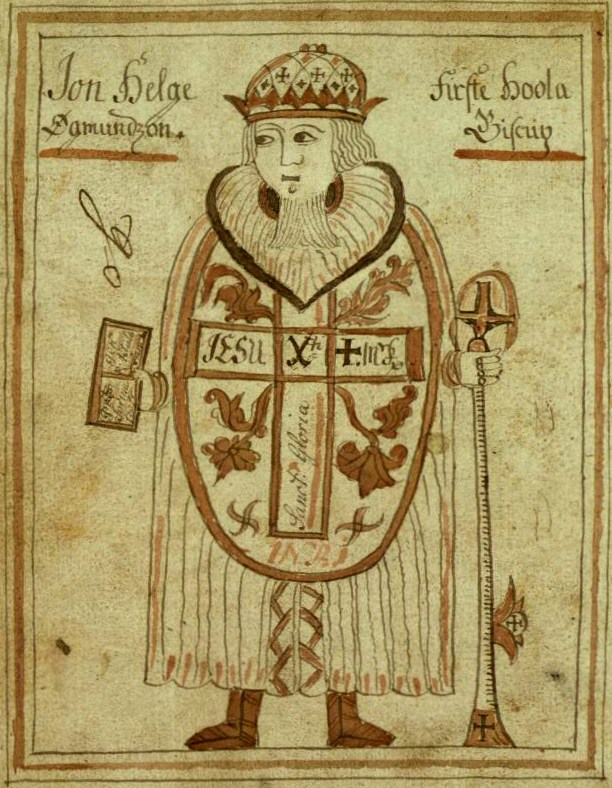 Jon Helge
Øgmundzon.
Firste Hoola
Biscup
JESU Xth
Sanct. Gloria
INRI